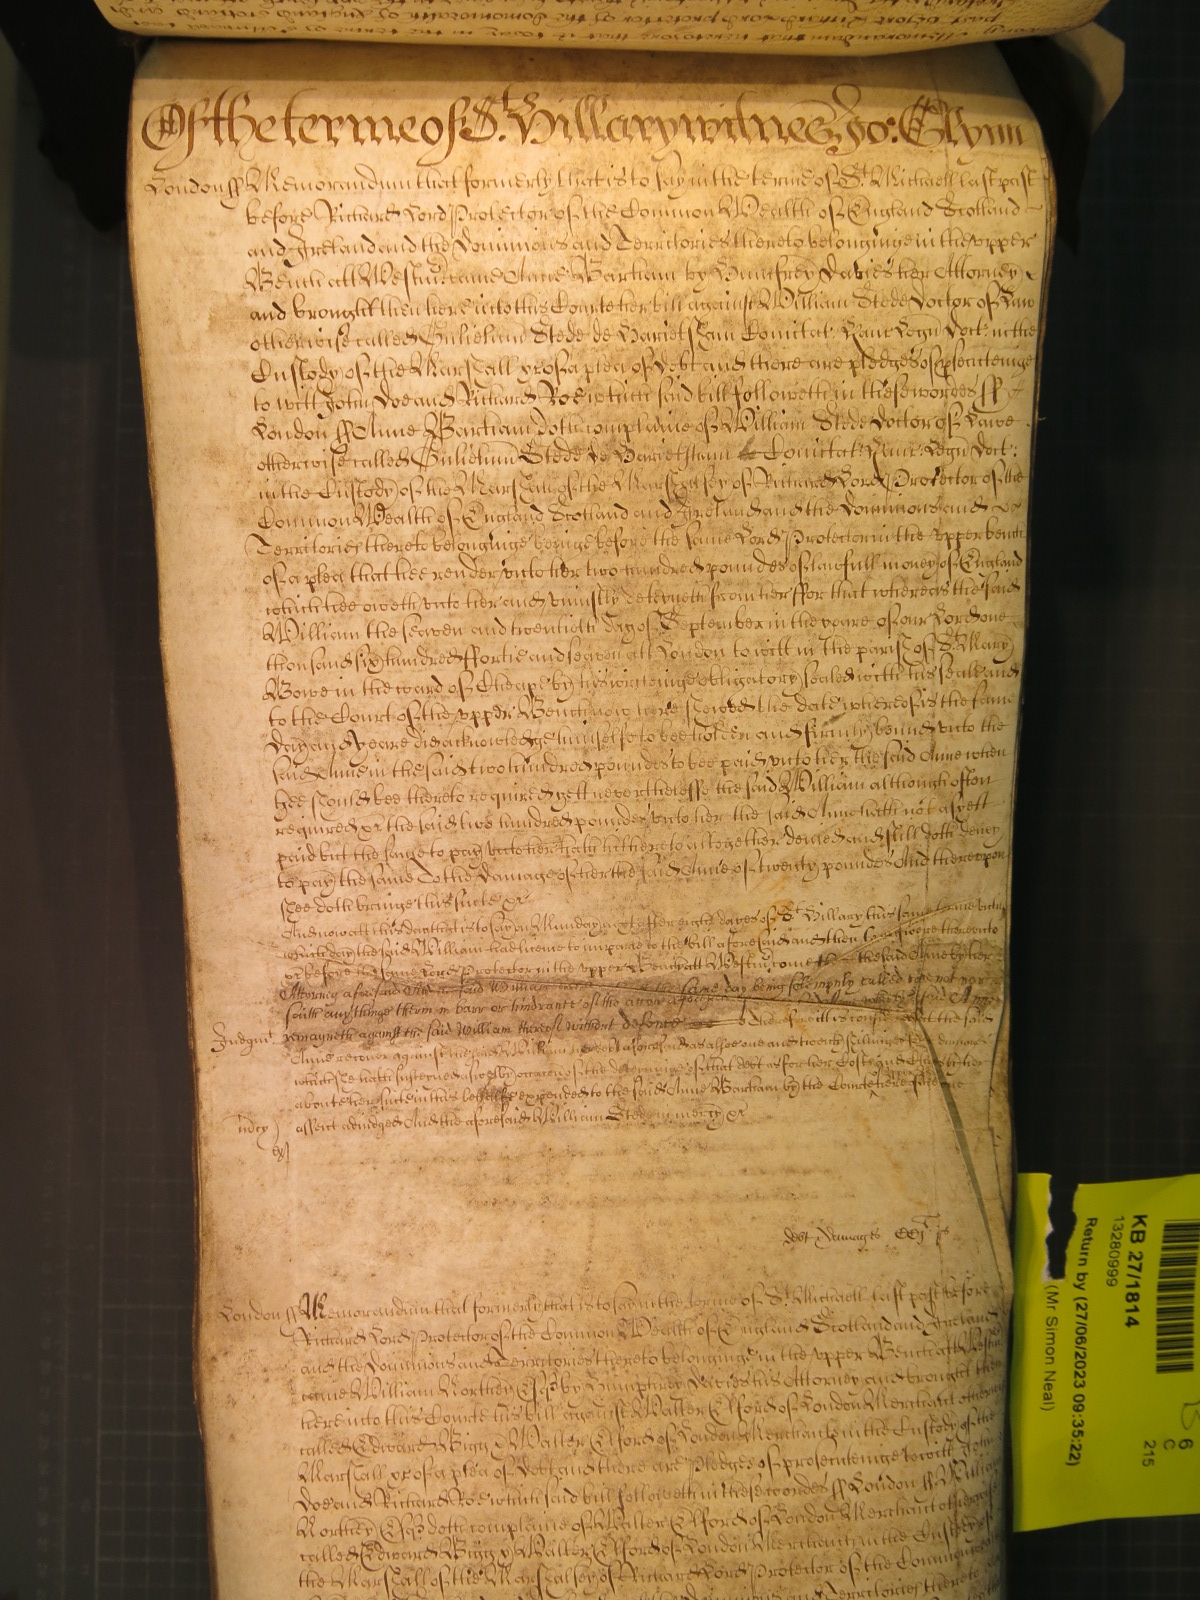 Of the terme of St. Hillary witnes Jo: Glynn
London ss Memorandum that formerly that is to say in the terme of St. Michaell last past
before Richard Lord Protector of the Common Wealth of England Scotland
and Ireland and the Dominions and Territories thereto belonginge in the vpper
Bench att Westmr came Anne Barham by Humfrey Davies her Attorney
and brought then here into this Courte her bill against William Stede Doctor of Law
otherwise called Gulielmu Stede de Harietsham Comitat: Kanc: Legu Doct: in the
Custody of the Marshall &c of a plea of Debt and there are pledges of prosecutinge
to witt John Doe and Richard Roe which said bill followeth in these wordes ss
London ss Anne Barham doth complaine of William Stede Doctor of Lawe
otherwise called Gulielmu Stede de Harietsham Comitat: Kanc: Legu Doct:
in the Custody of the Marshall of the Marshalsey of Richard Lord Protector of the
Common Wealth of England Scotland and Ireland and the Dominions and
Territories thereto belonginge beinge before the same Lord Protector in the vpper bench
of a plea that hee render vnto her two hundred poundes of lawfull money of England
which hee oweth vnto her and vniustly deteyneth from her ffor that whereas the said
William the seaven and twentieth day of September in the yeare of our Lord one
thousand six hundred ffortie and seaven att London to witt in the parish of St. Mary
Bowe in the ward of Cheape by his writeinge obligatory sealed with his seale and
to the Court of the vpper Bench now here shewed the date whereof is the same
day and yeare did acknowledge himselfe to bee holden and firmly bound vnto the
said Anne in the said two hundred poundes to bee paid vnto her the said Anne when
hee should bee thereto required yett neverthelesse the said William although often
required &c the said two hundred poundes vnto her the said Anne hath not as yett
paid but the same to pay vnto her hath hitherto altogether denied and still doth deny
to pay the same To the Damage of her the said Anne of twenty poundes And therevpon
shee doth bringe this suite &c
And now att this day that is to say on Munday next after eight dayes of St. Hillary this same terme vntill
which day the said William had licence to imparle to the bill aforesaid and then to answere therevnto
&c before the same Lord Protector in the vpper Bench att Westmr come the said Anne by her
Attorney aforesaid And the said William the same day being solemnly called cometh not nor
saith any thinge therein in barr or hindrance of the accon aforesaid
Judgmt remayneth against the said William thereof without defence Therefore itt is considered that the said
Anne recover against the said William her debt aforesaid as alsoe one and twenty shillinges for damages
which shee hath susteyned aswell by occasion of the deteyninge of that debt as for her Costes and Charges by her
about her suite in this behalfe expended to the said Anne Barham by the Courte here
mcy assent adiudged And the aforesaid William Stede in mercy &c
debt & damages CCj li
London ss Memorandum that formerly that is to say in the terme of St. Michaell last past before
Richard Lord Protector of the Common Wealth of England Scotland and Ireland
and the Dominions and Territories thereto belonginge in the vpper Bench att Westmr
came William Northey Esqr by Humphrey Davies his Attorney and brought then
here into this Courte his bill against Walter Elford of London Merchant otherwise
called Edward Bigg & Walter Elford of London Merchants in the Custody of the
Marshall &c of a plea of Debt and there are Pledges of prosecuteinge to witt John
Doe and Richard Roe which said bill followeth in these wordes ss London ss William
Northey Esqr doth complaine of Walter Elford of London Merchant otherwise
called Edward Bigg & Walter Elford of London Merchants in the Custody of
the Marshall of the Marshalsey of Richard Lord Protector of the Common
KB 27/1814
13280999
Return by (27/06/2023 09:35:22)
(Mr Simon Neal)
6
C
215